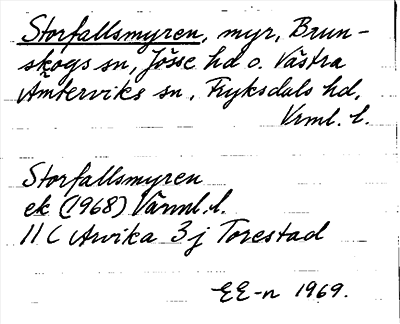 Storfallsmyren, myr, Brun-
skogs sn, Jösse hd o. Västra
Ämterviks sn, Fryksdals hd,
Vrml. l.
Storfallsmyren
ek (1968) Värml. l.
11 C Arvika 3 j Torestad
EE-n 1969.